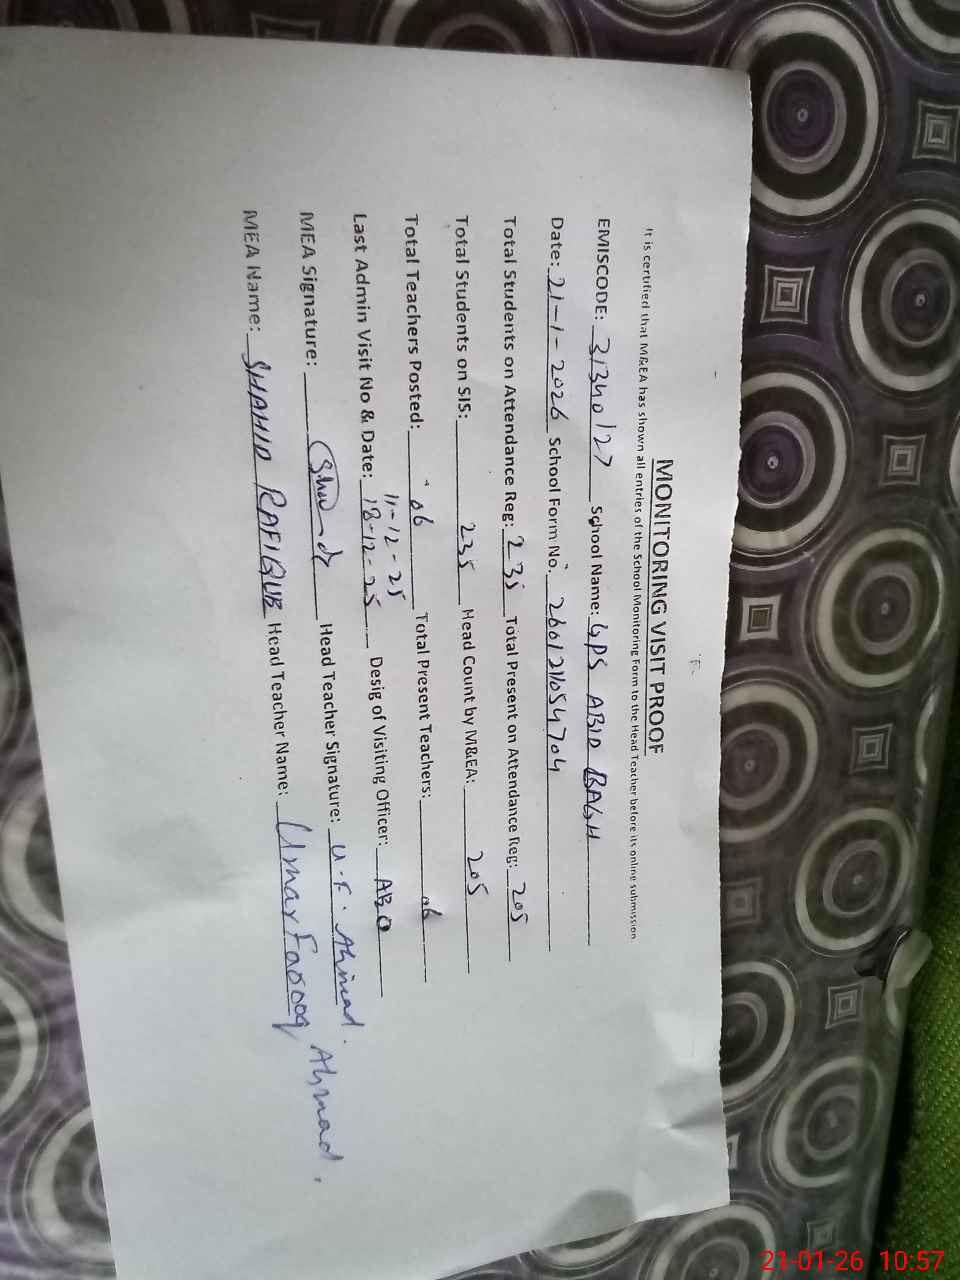 MONITORING VISIT PROOF
It is certified that M&EA has shown all entries of the School Monitoring Form to the Head Teacher before its online submission
EMISCODE: 31340127 School Name: GPS ABID BAGH
Date: 21-1-2026 School Form No. 260121054704
Total Students on Attendance Reg: 235 Total Present on Attendance Reg: 205
Total Students on SIS: 235 Head Count by M&EA: 205
Total Teachers Posted: 06 Total Present Teachers: 06
11-12-25
Last Admin Visit No & Date: 18-12-25 Desig of Visiting Officer: AEO
MEA Signature: Head Teacher Signature: U.F. Ahmad.
MEA Name: SHAHID RAFIQUE Head Teacher Name: Umar Farooq Ahmad.
21-01-26 10:57